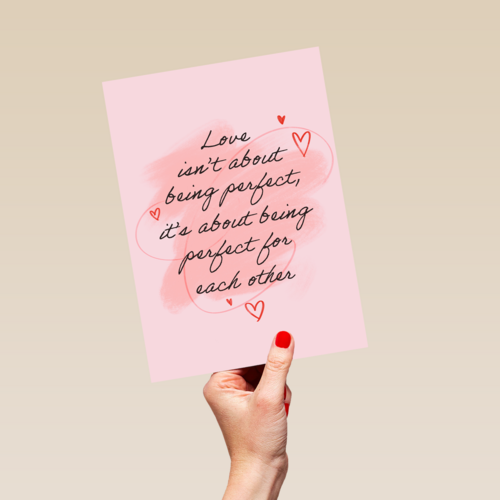 Love
isn't about
being perfect,
it's about being
perfect for
each other